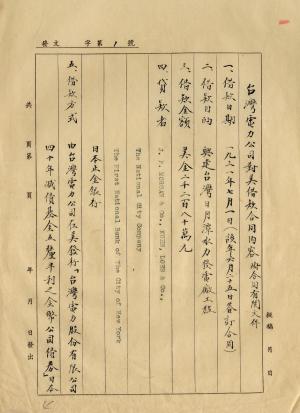 發文　字第 1 號
擬稿 月 日
台灣電力公司對美借款合同內容 附合同有關文件
一、借款日期　一九三一年七月一日(該年六月二十五日簽訂合同)
二、借款目的　興建台灣日月潭水力發電廠工程
三、借款金額　美金二千二百八十萬元
四、貸款者　J. P. MORGAN & Co., KUHN, LOEB & Co.,
The National City Company
The First National Bank of The City of New York
日本正金銀行
五、借款方式　由台灣電力公司在美發行「台灣電力股份有限公司
四十年減債基金五釐半利之金幣公司債券」日本
共 頁第 頁　年 月 日發出